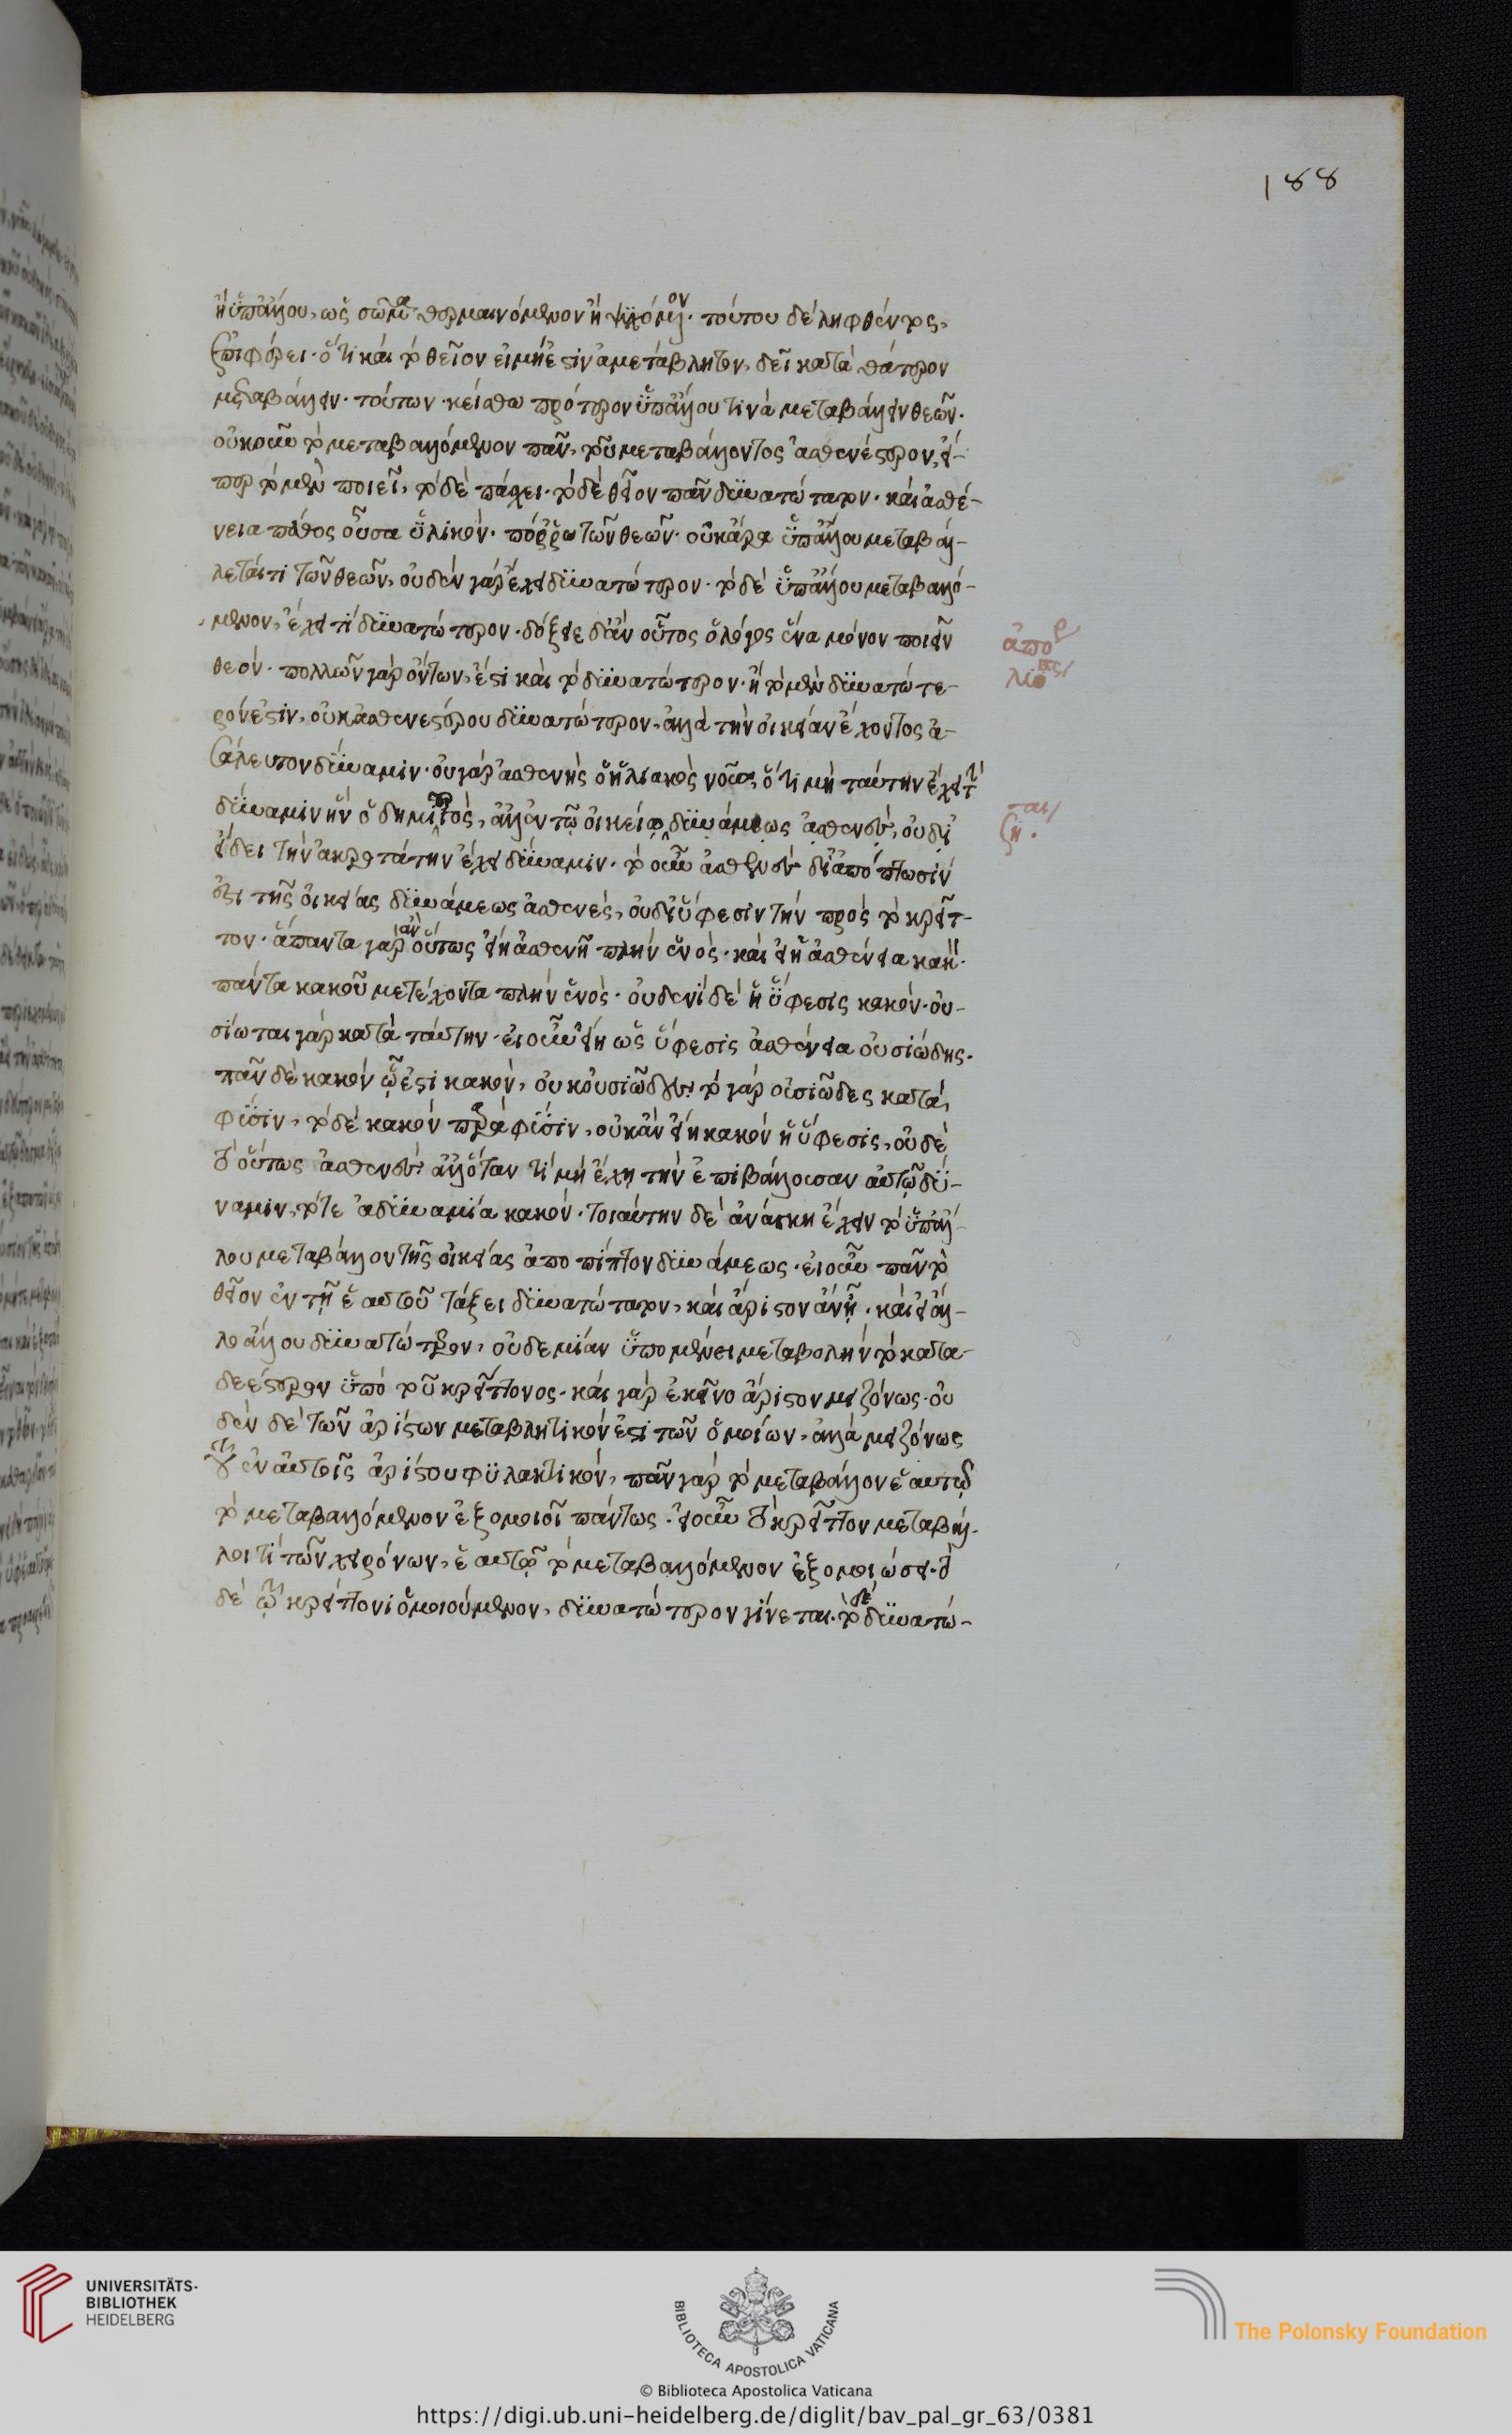 188
ἢ ὑπ' ἄλλου, ὡς σῶμα θερμαινόμενον ἢ ψυχόμενον. τούτου δὲ ληφθέντος,
ἐπιφέρει. ὅτι καὶ τὸ θεῖον εἰ μή ἐστιν ἀμετάβλητον, δεῖ κατὰ θάτερον
μεταβάλλειν. τούτων κείσθω πρότερον ὑπ' ἄλλου τινὰ μεταβάλλειν θεῶν.
οὐκοῦν τὸ μεταβαλλόμενον πᾶν, τοῦ μεταβάλλοντος ἀσθενέστερον, εἴ-
περ τὸ μὲν ποιεῖ, τὸ δὲ πάσχει. τὸ δὲ θεῖον πᾶν δυνατώτατον. καὶ ἀσθέ-
νεια πάθος οὖσα ὑλικόν. πόρρω τῶν θεῶν. οὐκ ἄρα ὑπ' ἄλλου μεταβάλ-
λεταί τι τῶν θεῶν, οὐδὲν γὰρ ἔχει δυνατώτερον. τὸ δὲ ὑπ' ἄλλου μεταβαλλό-
μενον, ἔχει τι δυνατώτερον. δόξειε δ' ἂν οὗτος ὁ λόγος ἕνα μόνον ποιεῖν
θεόν. πολλῶν γὰρ ὄντων, ἔστι καὶ τὸ δυνατώτερον. ἢ τὸ μὲν δυνατώτε-
ρόν ἐστιν, οὐκ ἀσθενεστέρου δυνατώτερον, ἀλλὰ τὴν οἰκείαν ἔχοντος ἀ-
σάλευτον δύναμιν. οὐ γὰρ ἀσθενὴς ὁ ἡλιακὸς νοῦς, ὅτι μὴ ταύτην ἔχει τὴν
δύναμιν ἣν ὁ δημιουργικός, ἀλλ' ἐν τῷ οἰκείῳ δυνάμεως ἀσθενὲς, οὐδ'
εἴδει τὴν ἀκροτάτην ἔχει δύναμιν. τὸ οὖν ἀσθενὲς δι' ἀπόπτωσίν
ἐστι τῆς οἰκείας δυνάμεως ἀσθενές, οὐ δι' ὕφεσιν τὴν πρὸς τὸ κρεῖτ-
τον. ἅπαντα γὰρ ἂν οὕτως εἴη ἀσθενῆ πλὴν ἑνός. καὶ εἰ ἡ ἀσθένεια κακὴ.
πάντα κακοῦ μετέχοντα πλὴν ἑνός. οὐδενὶ δὲ ἡ ὕφεσις κακόν. οὐ-
σίωται γὰρ κατὰ ταύτην. εἰ οὖν εἴη ὡς ὕφεσις ἀσθένεια οὐσιώδης.
πᾶν δὲ κακὸν ᾧ ἐστι κακὸν, οὐκ οὐσιῶδες. τὸ γὰρ οὐσιῶδες κατὰ
φύσιν, τὸ δὲ κακὸν παρὰ φύσιν, οὐκ ἂν εἴη κακὸν ἡ ὕφεσις, οὐδὲ
τὸ οὕτως ἀσθενές. ἀλλ' ὅταν τι μὴ ἔχῃ τὴν ἐπιβάλλουσαν αὐτῷ δύ-
ναμιν, τότε ἀδυναμία κακόν. τοιαύτην δὲ ἀνάγκη ἔχειν τὸ ὑπ' ἄλ-
λου μεταβάλλον τῆς οἰκείας ἀποπίπτον δυνάμεως. εἰ οὖν πᾶν τὸ
θεῖον ἐν τῇ ἑαυτοῦ τάξει δυνατώτατον, καὶ ἄριστον ἂν ᾖ. καὶ εἰ ἄλ-
λο ἄλλου δυνατώτερον, οὐδεμίαν ὑπομένει μεταβολὴν τὸ κατα-
δεέστερον ὑπὸ τοῦ κρείττονος. καὶ γὰρ ἐκεῖνο ἄριστον μειζόνως. οὐ
δὲν δὲ τῶν ἀρίστων μεταβλητικόν ἐστι τῶν ὁμοίων, ἀλλὰ μειζόνως
τοῦ ἐν αὐτοῖς ἀρίστου φυλακτικόν, πᾶν γὰρ τὸ μεταβάλλον ἑαυτῷ
τὸ μεταβαλλόμενον ἐξομοιοῖ πάντως. εἰ οὖν τὸ κρεῖττον μεταβάλ-
λοι τι τῶν χειρόνων, ἑαυτῷ τὸ μεταβαλλόμενον ἐξομοιώσει. τὸ
δὲ τῷ κρείττονι ὁμοιούμενον, δυνατώτερον γίνεται. τὸ δὲ δυνατώ-
ἀπορ
λύσις
UNIVERSITÄTS-
BIBLIOTHEK
HEIDELBERG
BIBLIOTECA APOSTOLICA VATICANA
The Polonsky Foundation
© Biblioteca Apostolica Vaticana
https://digi.ub.uni-heidelberg.de/diglit/bav_pal_gr_63/0381